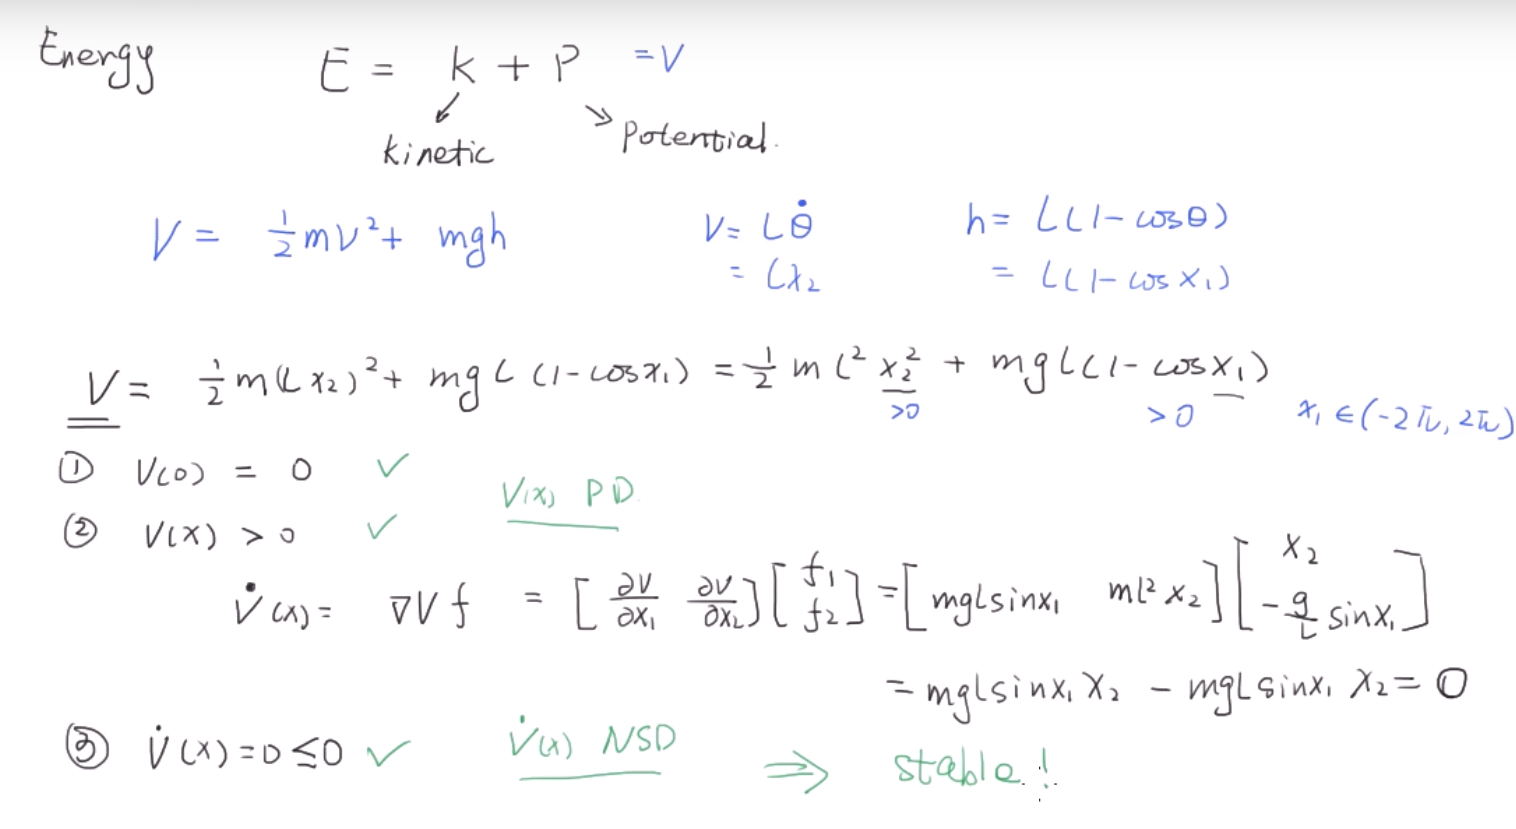 Energy E = K + P = V
kinetic Potential.
V = ½mv² + mgh V = Lθ̇ h = L(1-cosθ)
= Lx₂ = L(1-cos x₁)
V = ½m(Lx₂)² + mgL(1-cosx₁) = ½ml²x₂² + mgL(1-cosx₁)
>0 >0 x₁ ∈ (-2π, 2π)
① V(0) = 0 ✓
V(x) PD
② V(x) > 0 ✓
V̇(x) = ∇V f = [∂V/∂x₁ ∂V/∂x₂][f₁ f₂] = [mgLsinx₁ ml²x₂][x₂ -g/L sinx₁]
= mgLsinx₁ x₂ - mgLsinx₁ x₂ = 0
③ V̇(x) = 0 ≤ 0 ✓ V̇(x) NSD ⇒ stable!